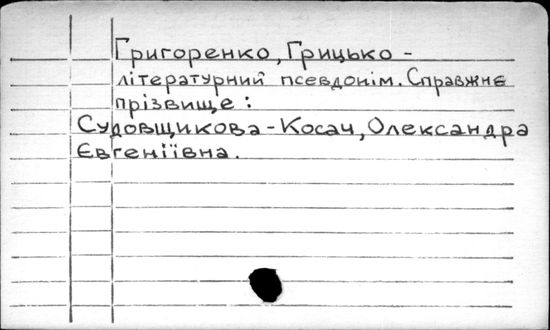 Григоренко, Грицько -
літературний псевдонім. Справжнє
прізвище:
Судовщикова-Косач, Олександра
Євгеніївна.